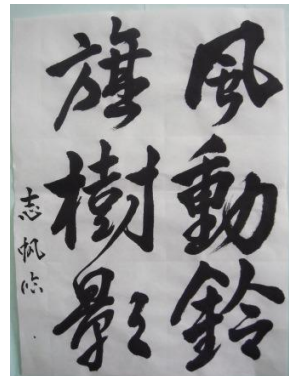 風動鈴
旗樹影
志帆临